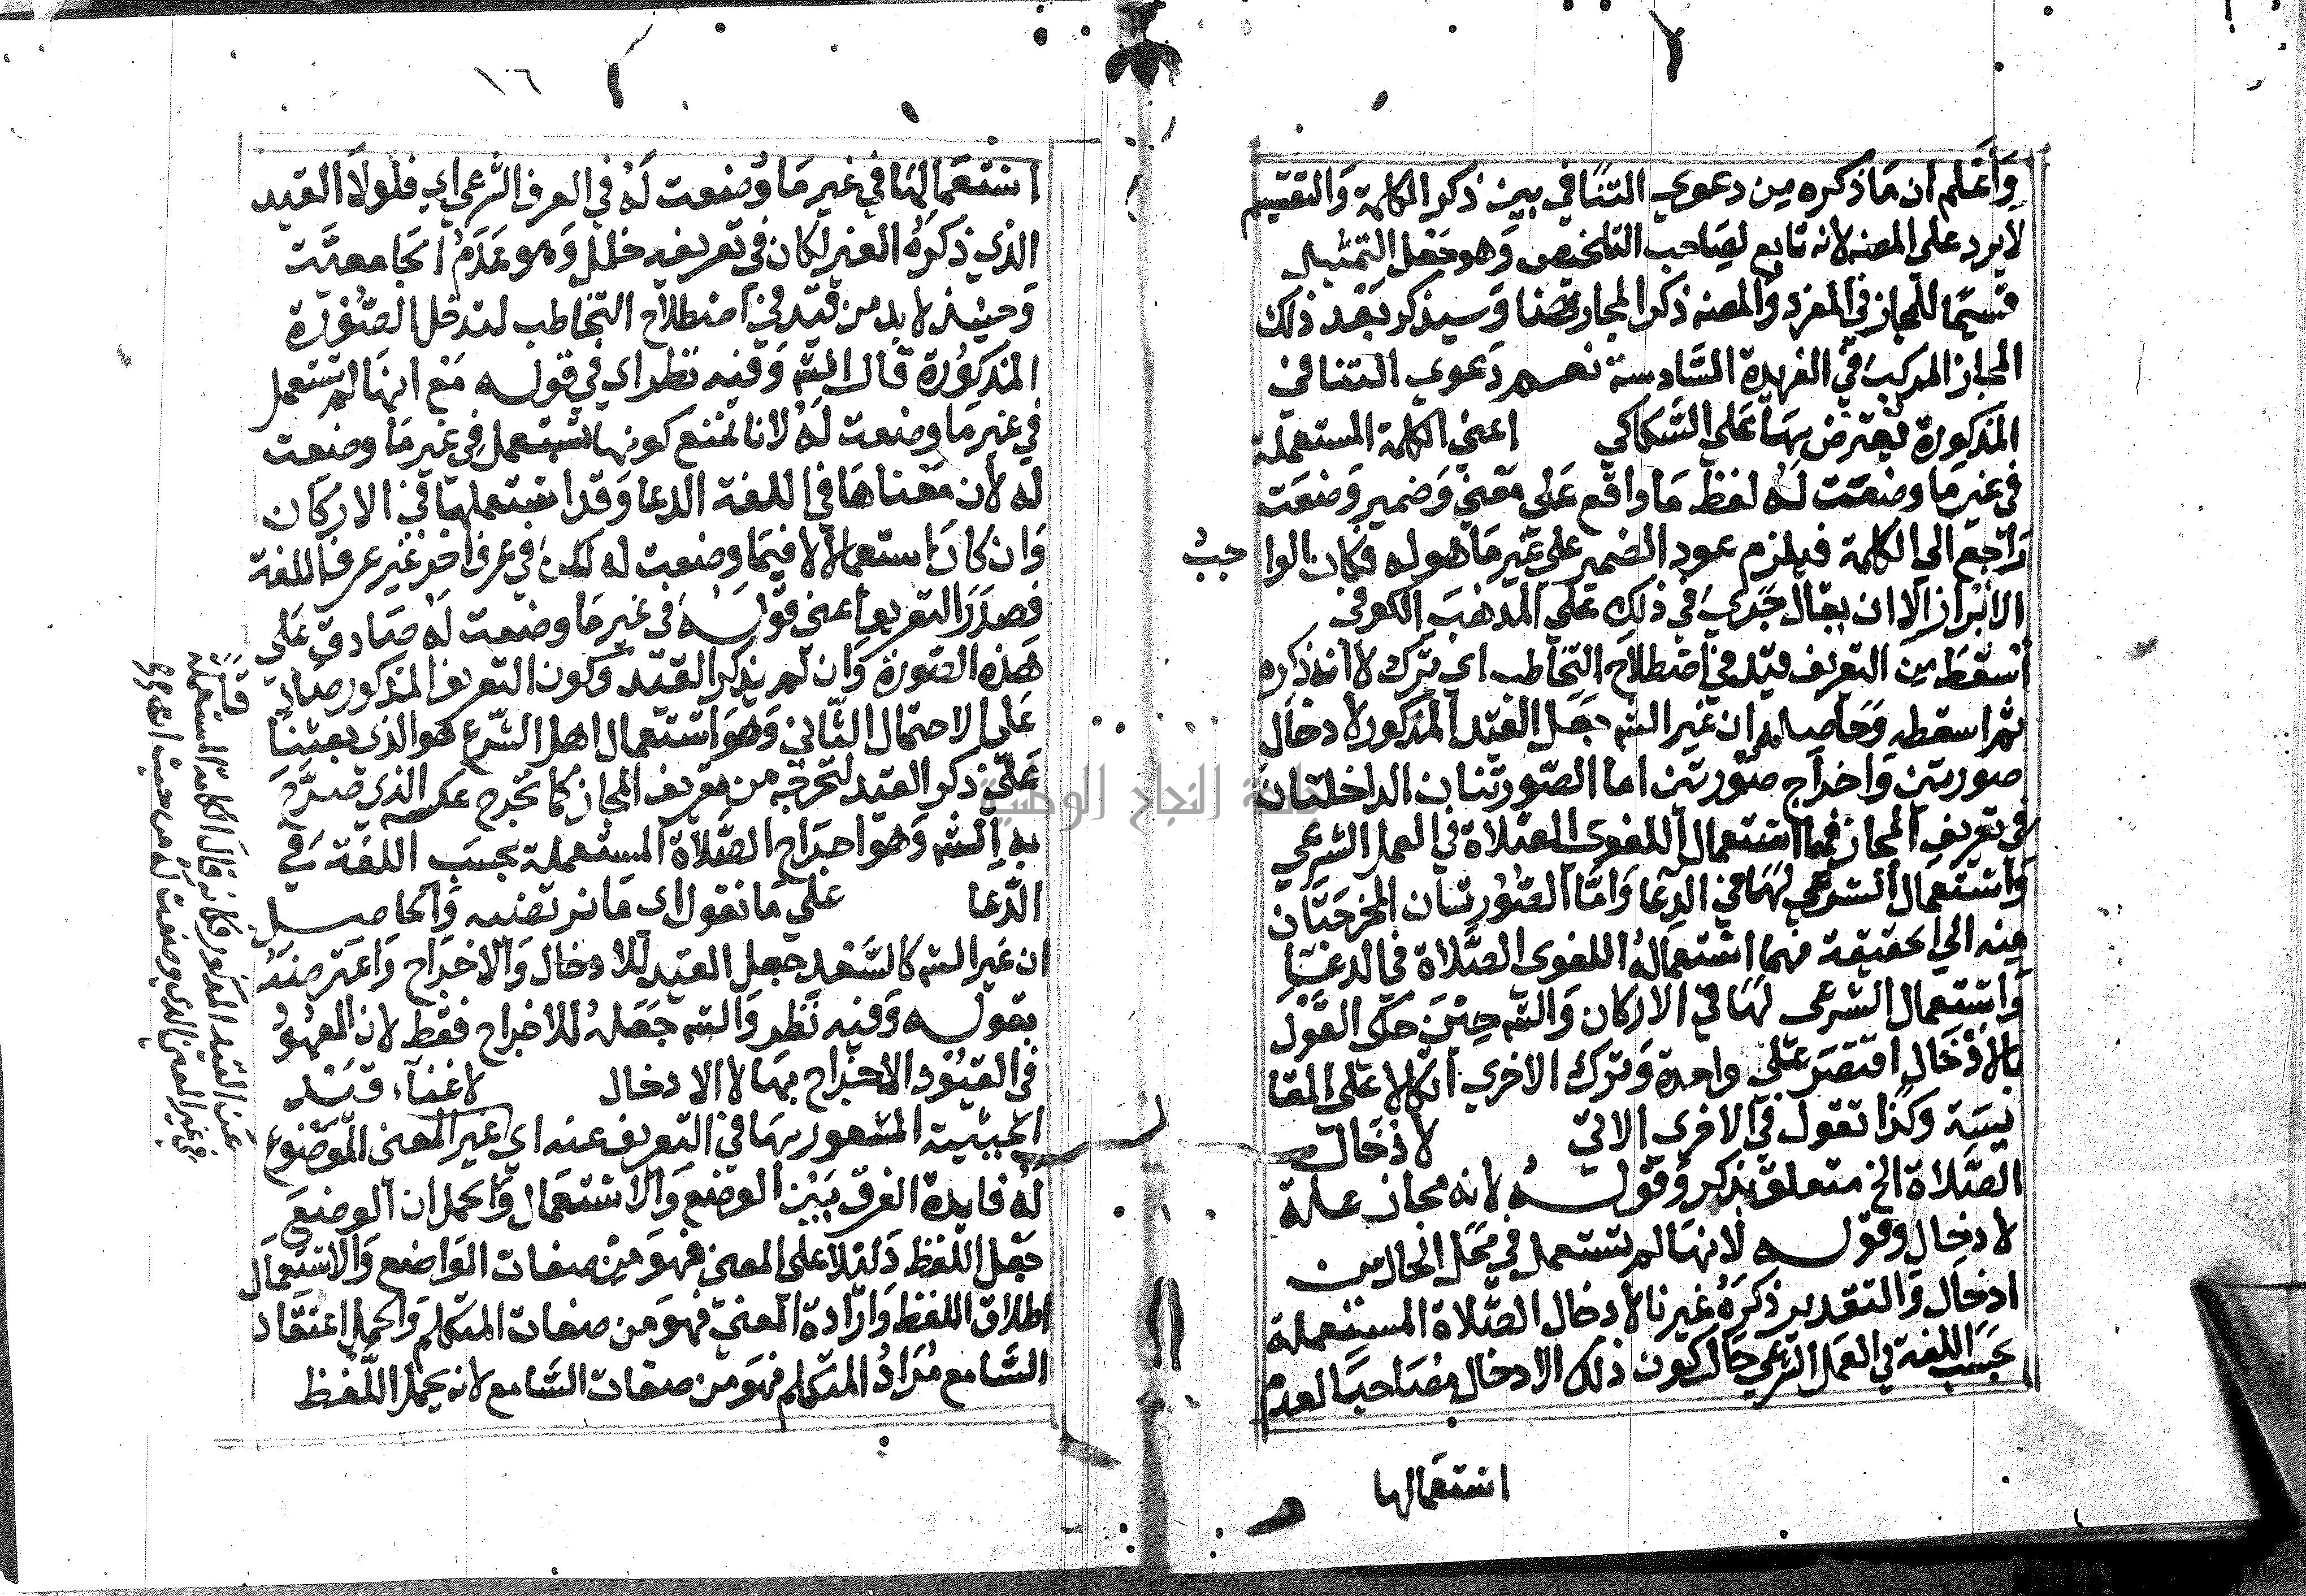 وَاَعْلم ان مَا ذكره مِن دعوي التنَافي بين ذكر الكلمة وَالتقسيم
لا يرد علي المصنه لانه تابع لصَاحب التلخيص وَهو جَعل التمثيل
قسيمَا للمجاز في المفرد وَالمصنه ذكر المجاز هنا وَسيذكر بَعْد ذلك
المجاز المركب في الفريدة السَّادسة نعم دَعوي التنافي
المذكورة يعترض بهَا عَلي السَّكاكي اعني الكلمة المستعملة
في غير مَا وضعت لَهُ لفظ مَا واقع عَلي مَعْني وَضمير وَضعَت
رَاجع الي الكلمة فيلزم عود الضمير علي غير مَا هو له فكان الوا جبُ
الابْراز الا ان يقال جَري في ذلك عَلي المذهبَ الكوفي
اسْقَط مِن التعريف قيد في اصْطلاح التخاطب اي ترك لا انه ذكره
ثم اسقطه وَحَاصله ان غير الشه جَعل القيد المذكور لادخال
صورتين وَاخراج صوْرتين اما الصّورتنان الداخلتان
في تعريف المجاز فهما استعمال اللغوي الصَلاة في العمل الشرعي
وَاسْتعمال الشرعي لهَا في الدعَا وَامَّا الصّوُرتان المخرجَتَان
منه الي الحقيقة فهما اسْتعمالهُ اللغوي الصَّلاة في الدعَا
وَاستعمال الشرعي لهَا في الاركان وَالشه حِيْن حكَي القوْل
بالادْخَال اقتصَر عَلي واحدة وَترك الاخري اتكالا عَلي المقا
يسَة وَكذا تقول في الاخري الاتي لادْخَال
الصَّلاة الخ متعلق بذكر وَقولهُ لانه مجاز علة
لادخال وقوله لانهَا لم تستعمل في محَل الحَال من
ادخال وَالتقدير ذكرَهُ غيرنا لادخال الصَّلاة المستعملة
بحَسَب اللغة في العَمل الشرعي حَال كون ذلك الادخال مصَاحبَا لعدم
استعمَالها
١٦
استعمالهَا في غير مَا وُضعت لَهُ في العرف الشرعي اي فلولا القيد
الذي ذكَرهُ الغير لكان في تعريفه خلل وَهو عَدَمُ الجَامعيَّت
وَحينئذ لا بد من قيْد في اصْطلاح التخاطب لتدخل الصُّوْرَة
المذكوُرة قال الشه وَفيه نَظر اي في قوله مَع انهَا لم تستعمل
في غير مَا وضعت لَهُ لانا نمنع كونها تستعمل في غير مَا وضعت
له لأن مَعْناهَا في اللغة الدعا وَقد استعملتهَا في الاركَان
وَان كان استعمالا لا فيمَا وضعت له لكن في عرف اخر غير عرف اللغة
فصدر التعريف اعني قوْلهُ في غير مَا وضعت لَه صَادق عَلي
هَذه الصّورَة وَان لم يذكر القيد وَكون التعريف المذكور صَادق
عَلي الاحتمال الثاني وَهو اسْتعمال اهل الشّرع هو الذي بعثنَا
عَلي ذكر القيد لتخرجه من تعريف المجاز كما تخرج عكسه الذي صرَّحَ
به الشه وَهو اخرَاج الصَّلاة المستعملة بحسَب اللغة في
الدّعا عَلي مَا نقول اي مَا نرتضيه وَالحَاصل
ان غير الشه كالسَّعْد جعل القيد للادخال وَالاخرَاج وَاعترضهُ
بقوله وَفيه نَظر وَالشه جَعَلهُ للاخراج فقط لان المعهُوُ
في القيُوْد الاخْرَاج بهَا لا الادخال لاغنآء قيْد
الحيثية المشعور بهَا في التعريف عنه اي غير المعني الموَضوع
لهُ فايدة الفرق بَيْن الوضع وَالاسْتعَمال وَالحمل ان الوضعَ
جَعل اللّفظ دَليلا عَلي المعني فهوَ مِن صفات الوَاضع وَالاستعمَال
اطلاق اللفظ وَارَادة المعني فهوَ من صفات المتكلم وَالحمل اعتقاد
السَّامع مُرَادُ المتكلم فهوَ من صفات السَّامع لانه يحمل اللَّفظ
عن القيد المذكور فكانه قال الكلمة المستعملة
في غير المعني الذي وضعت له من حيث
جامعة النجاح الوطنية